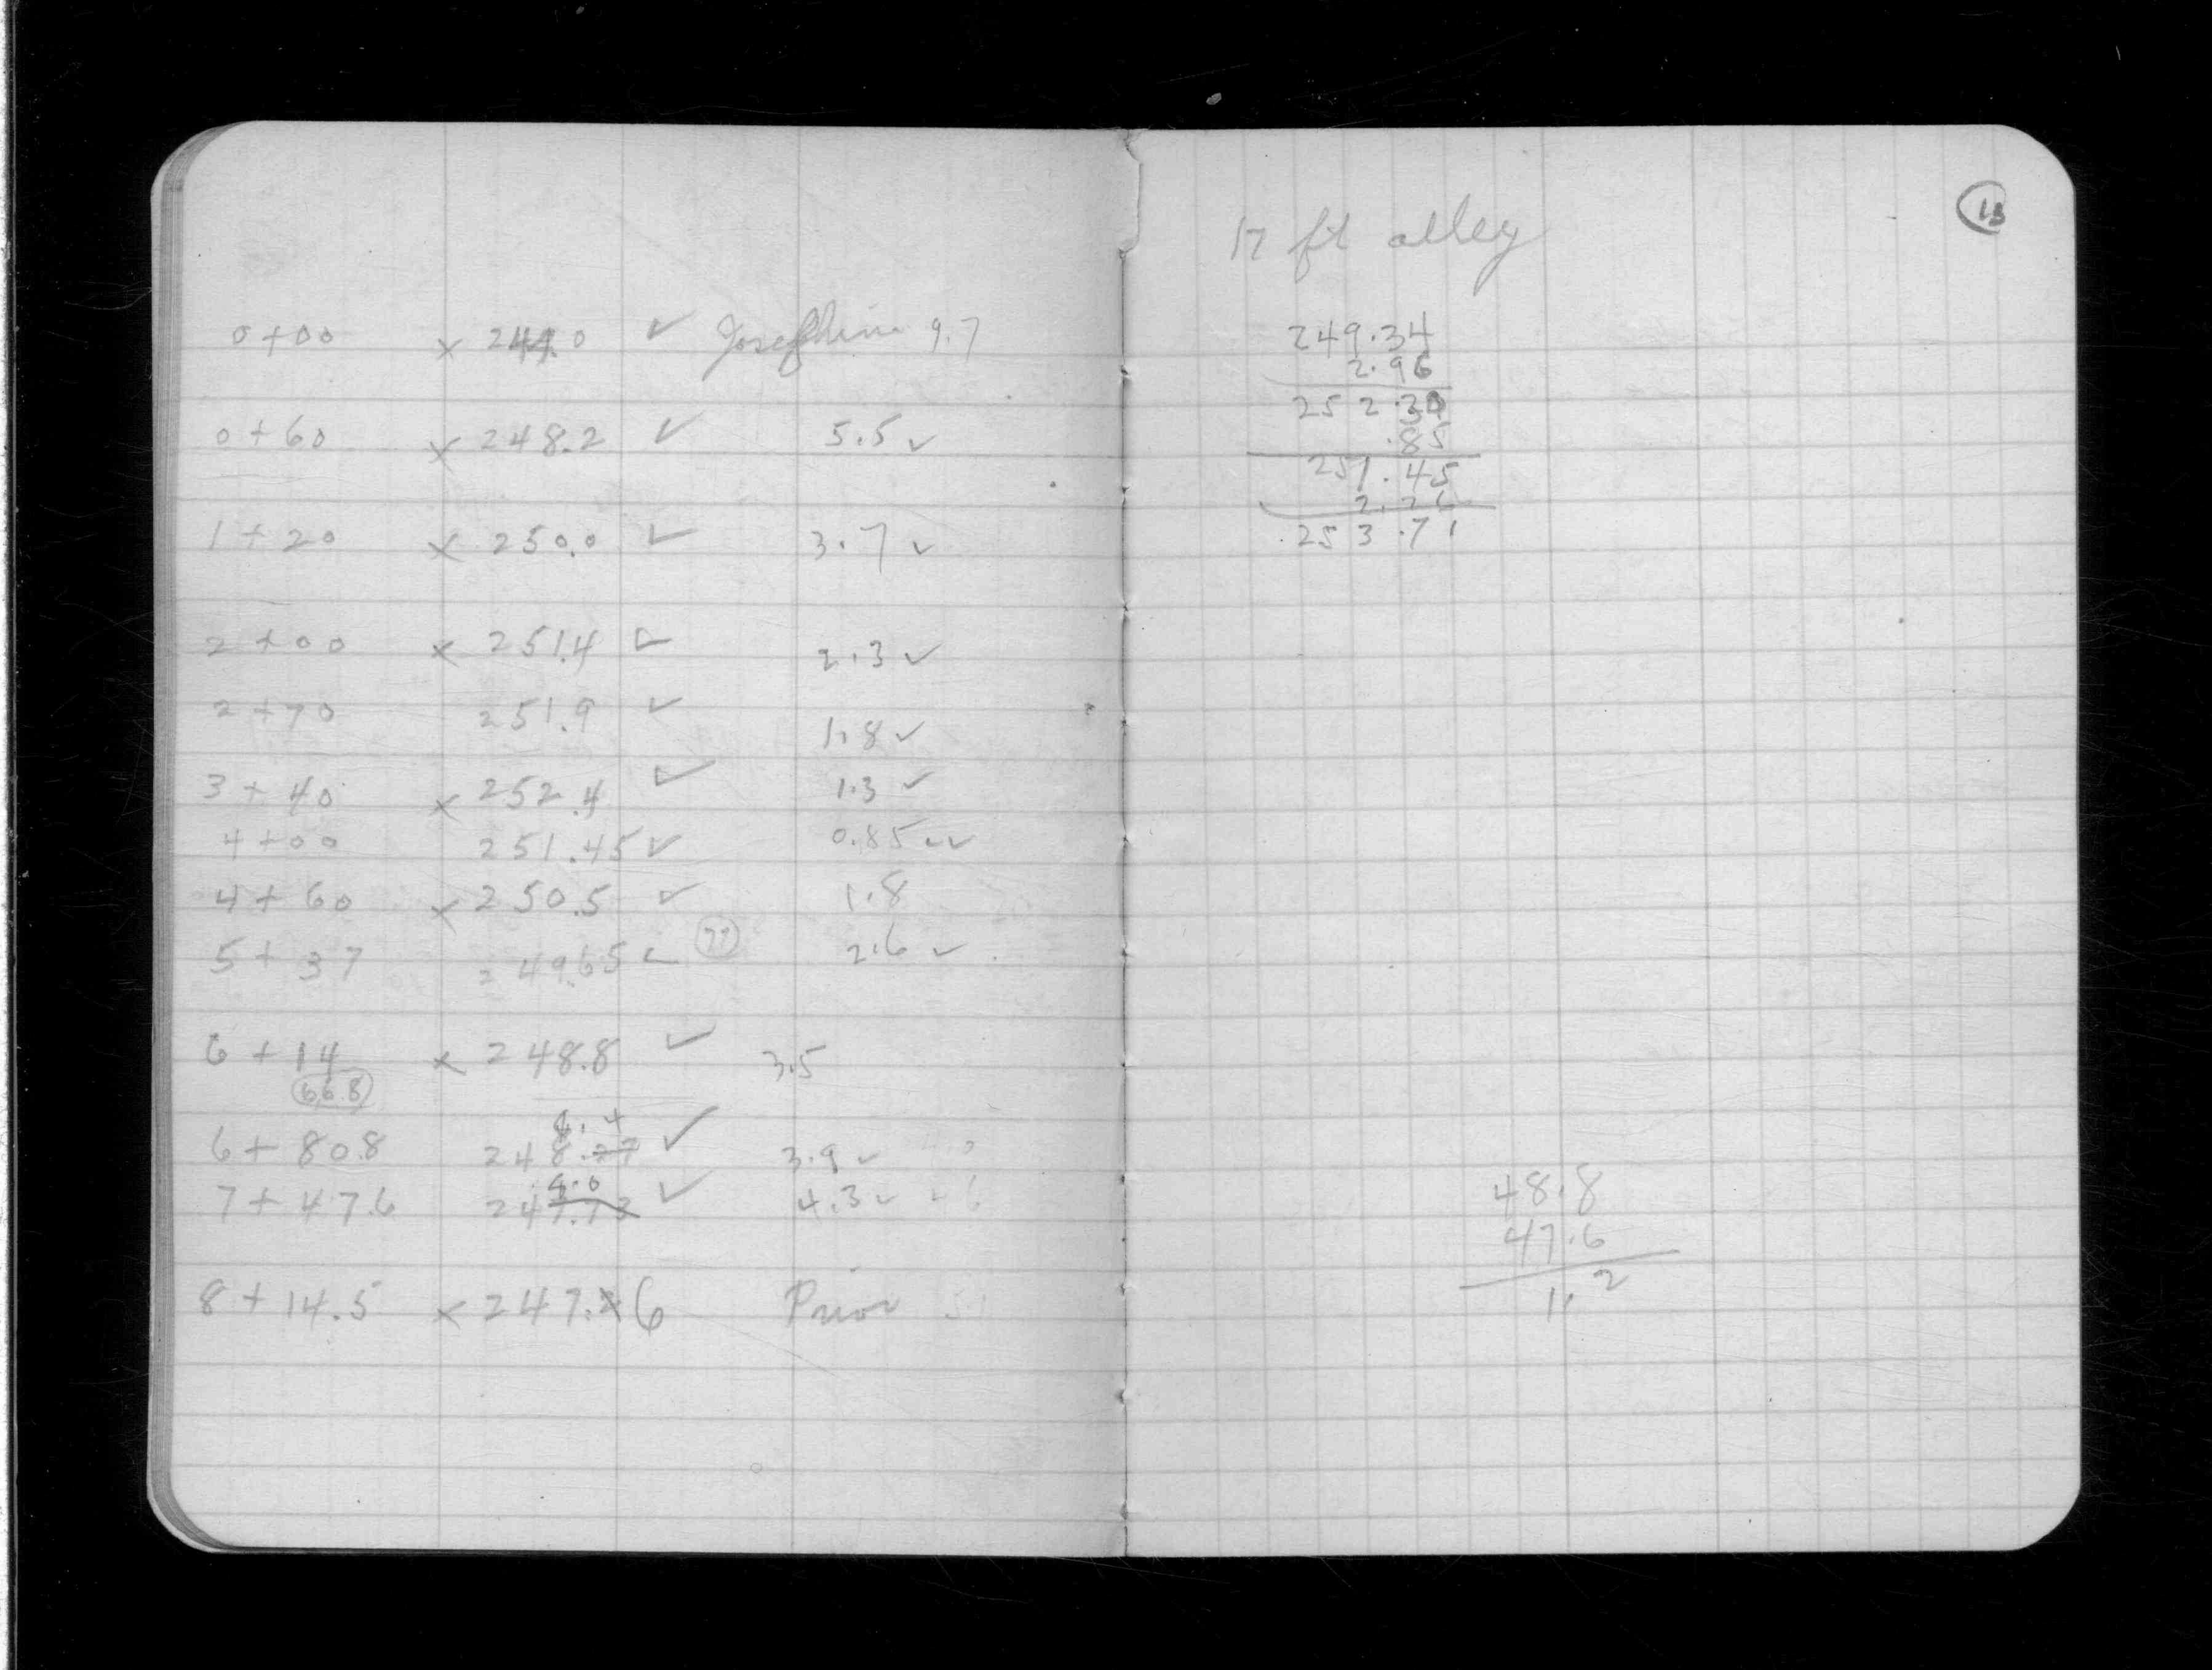 0+00 × 244.0 ✓ Josephine 9.7
0+60 × 248.2 ✓ 5.5 ✓
1+20 × 250.0 ✓ 3.7 ✓
2+00 × 251.4 ✓ 2.3 ✓
2+70 251.9 ✓ 1.8 ✓
3+40 × 252.4 ✓ 1.3 ✓
4+00 251.45 ✓ 0.85 ✓✓
4+60 × 250.5 ✓ 1.8
5+37 249.65 ✓ 77 2.6 ✓
6+14 × 248.8 ✓ 3.5
66.8
8.4
6+80.8 248.27 ✓ 3.9 ✓
8.0
7+47.6 247.73 ✓ 4.3 ✓
8+14.5 × 247.6 Prior
13
17 ft alley
249.34
2.96
252.30
.85
251.45
2.26
253.71
48.8
47.6
1.2